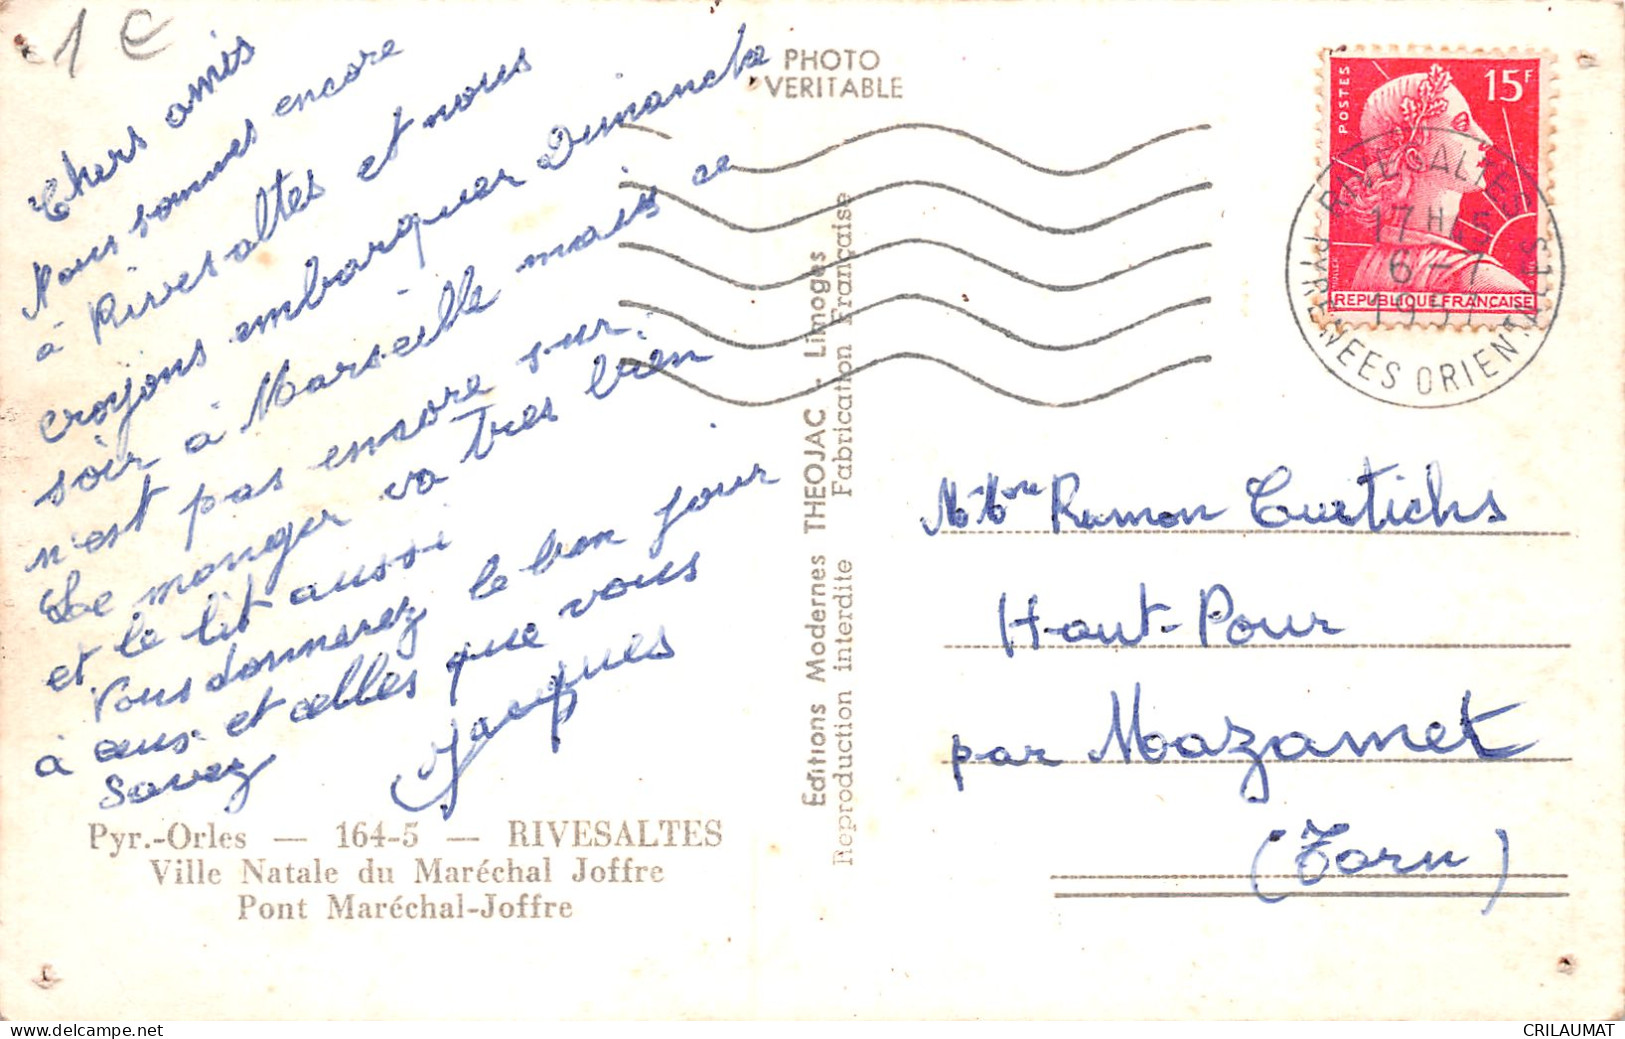 1 €
Chers amis
Nous sommes encore
à Rivesaltes et nous
croyons embarquer Dimanche
soir à Marseille mais ce
n'est pas encore sur.
Le manger va tres bien
et le lit aussi
Vous donnerez le bon jour
à ceux et celles que vous
savez
Jacques
Pyr.-Orles — 164-5 — RIVESALTES
Ville Natale du Maréchal Joffre
Pont Maréchal-Joffre
PHOTO
VERITABLE
Editions Modernes THEOJAC - Limoges
Reproduction interdite Fabrication Française
POSTES
15F
MULLER
REPUBLIQUE FRANÇAISE
RIVESALTES
17 H 45
6 - 7
1957
PYRENEES ORIENTALES
Ramon
Haut-Pour
par Mazamet
(Tarn)
CRILAUMAT